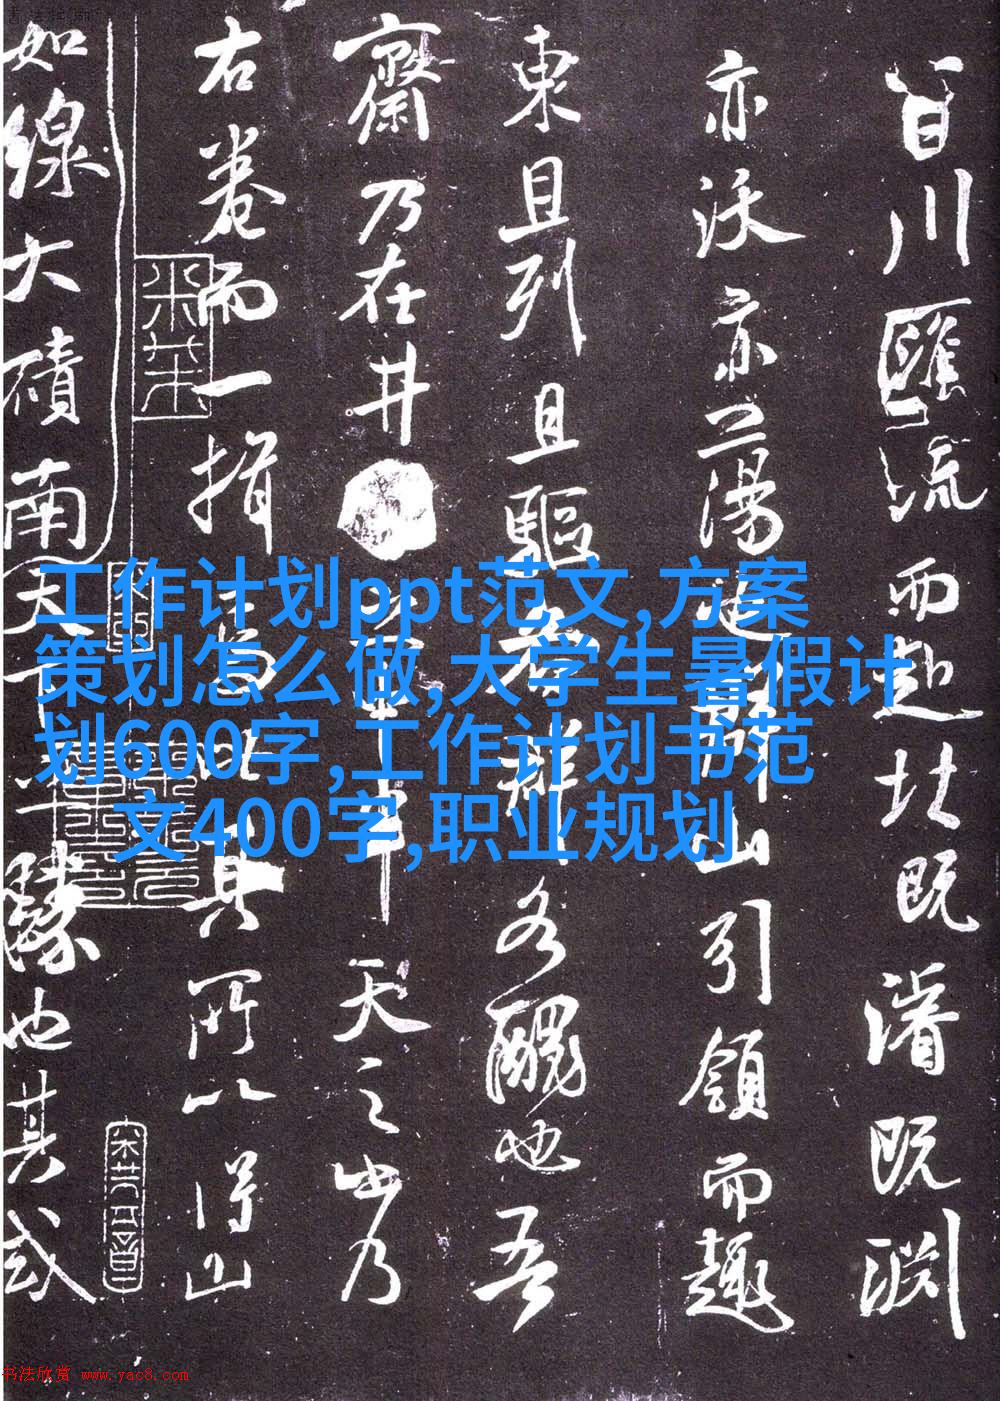 百川匯流而北既瀦既渊
亦沃亦蕩山引領而趣
東且列且驅群醜也吾
齋乃在井天之乃
右卷而一揖其所以得山
如線大磧南天下勝也其或
工作计划ppt范文,方案
策划怎么做,大学生暑假计
划600字,工作计划书范
文400字,职业规划
书法欣赏 www.yac8.com